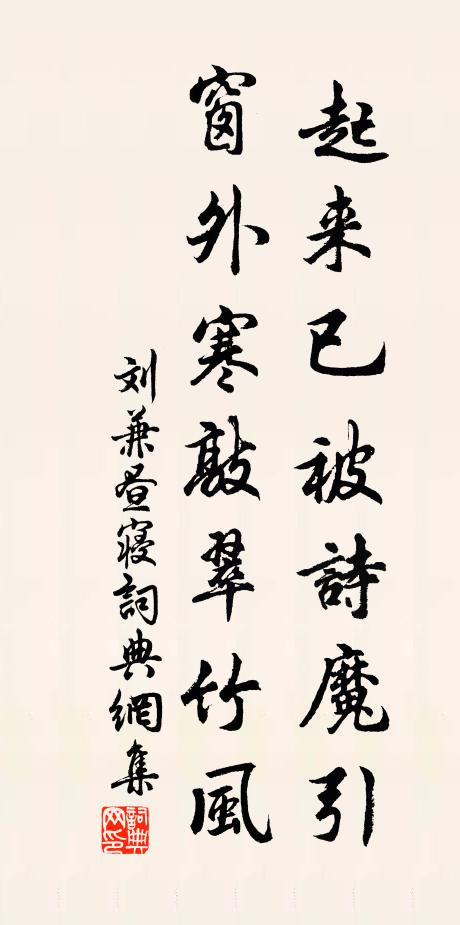 起来已被詩魔引
窗外寒敲翠竹風
刘兼昼寝詞典網集
詞典網印